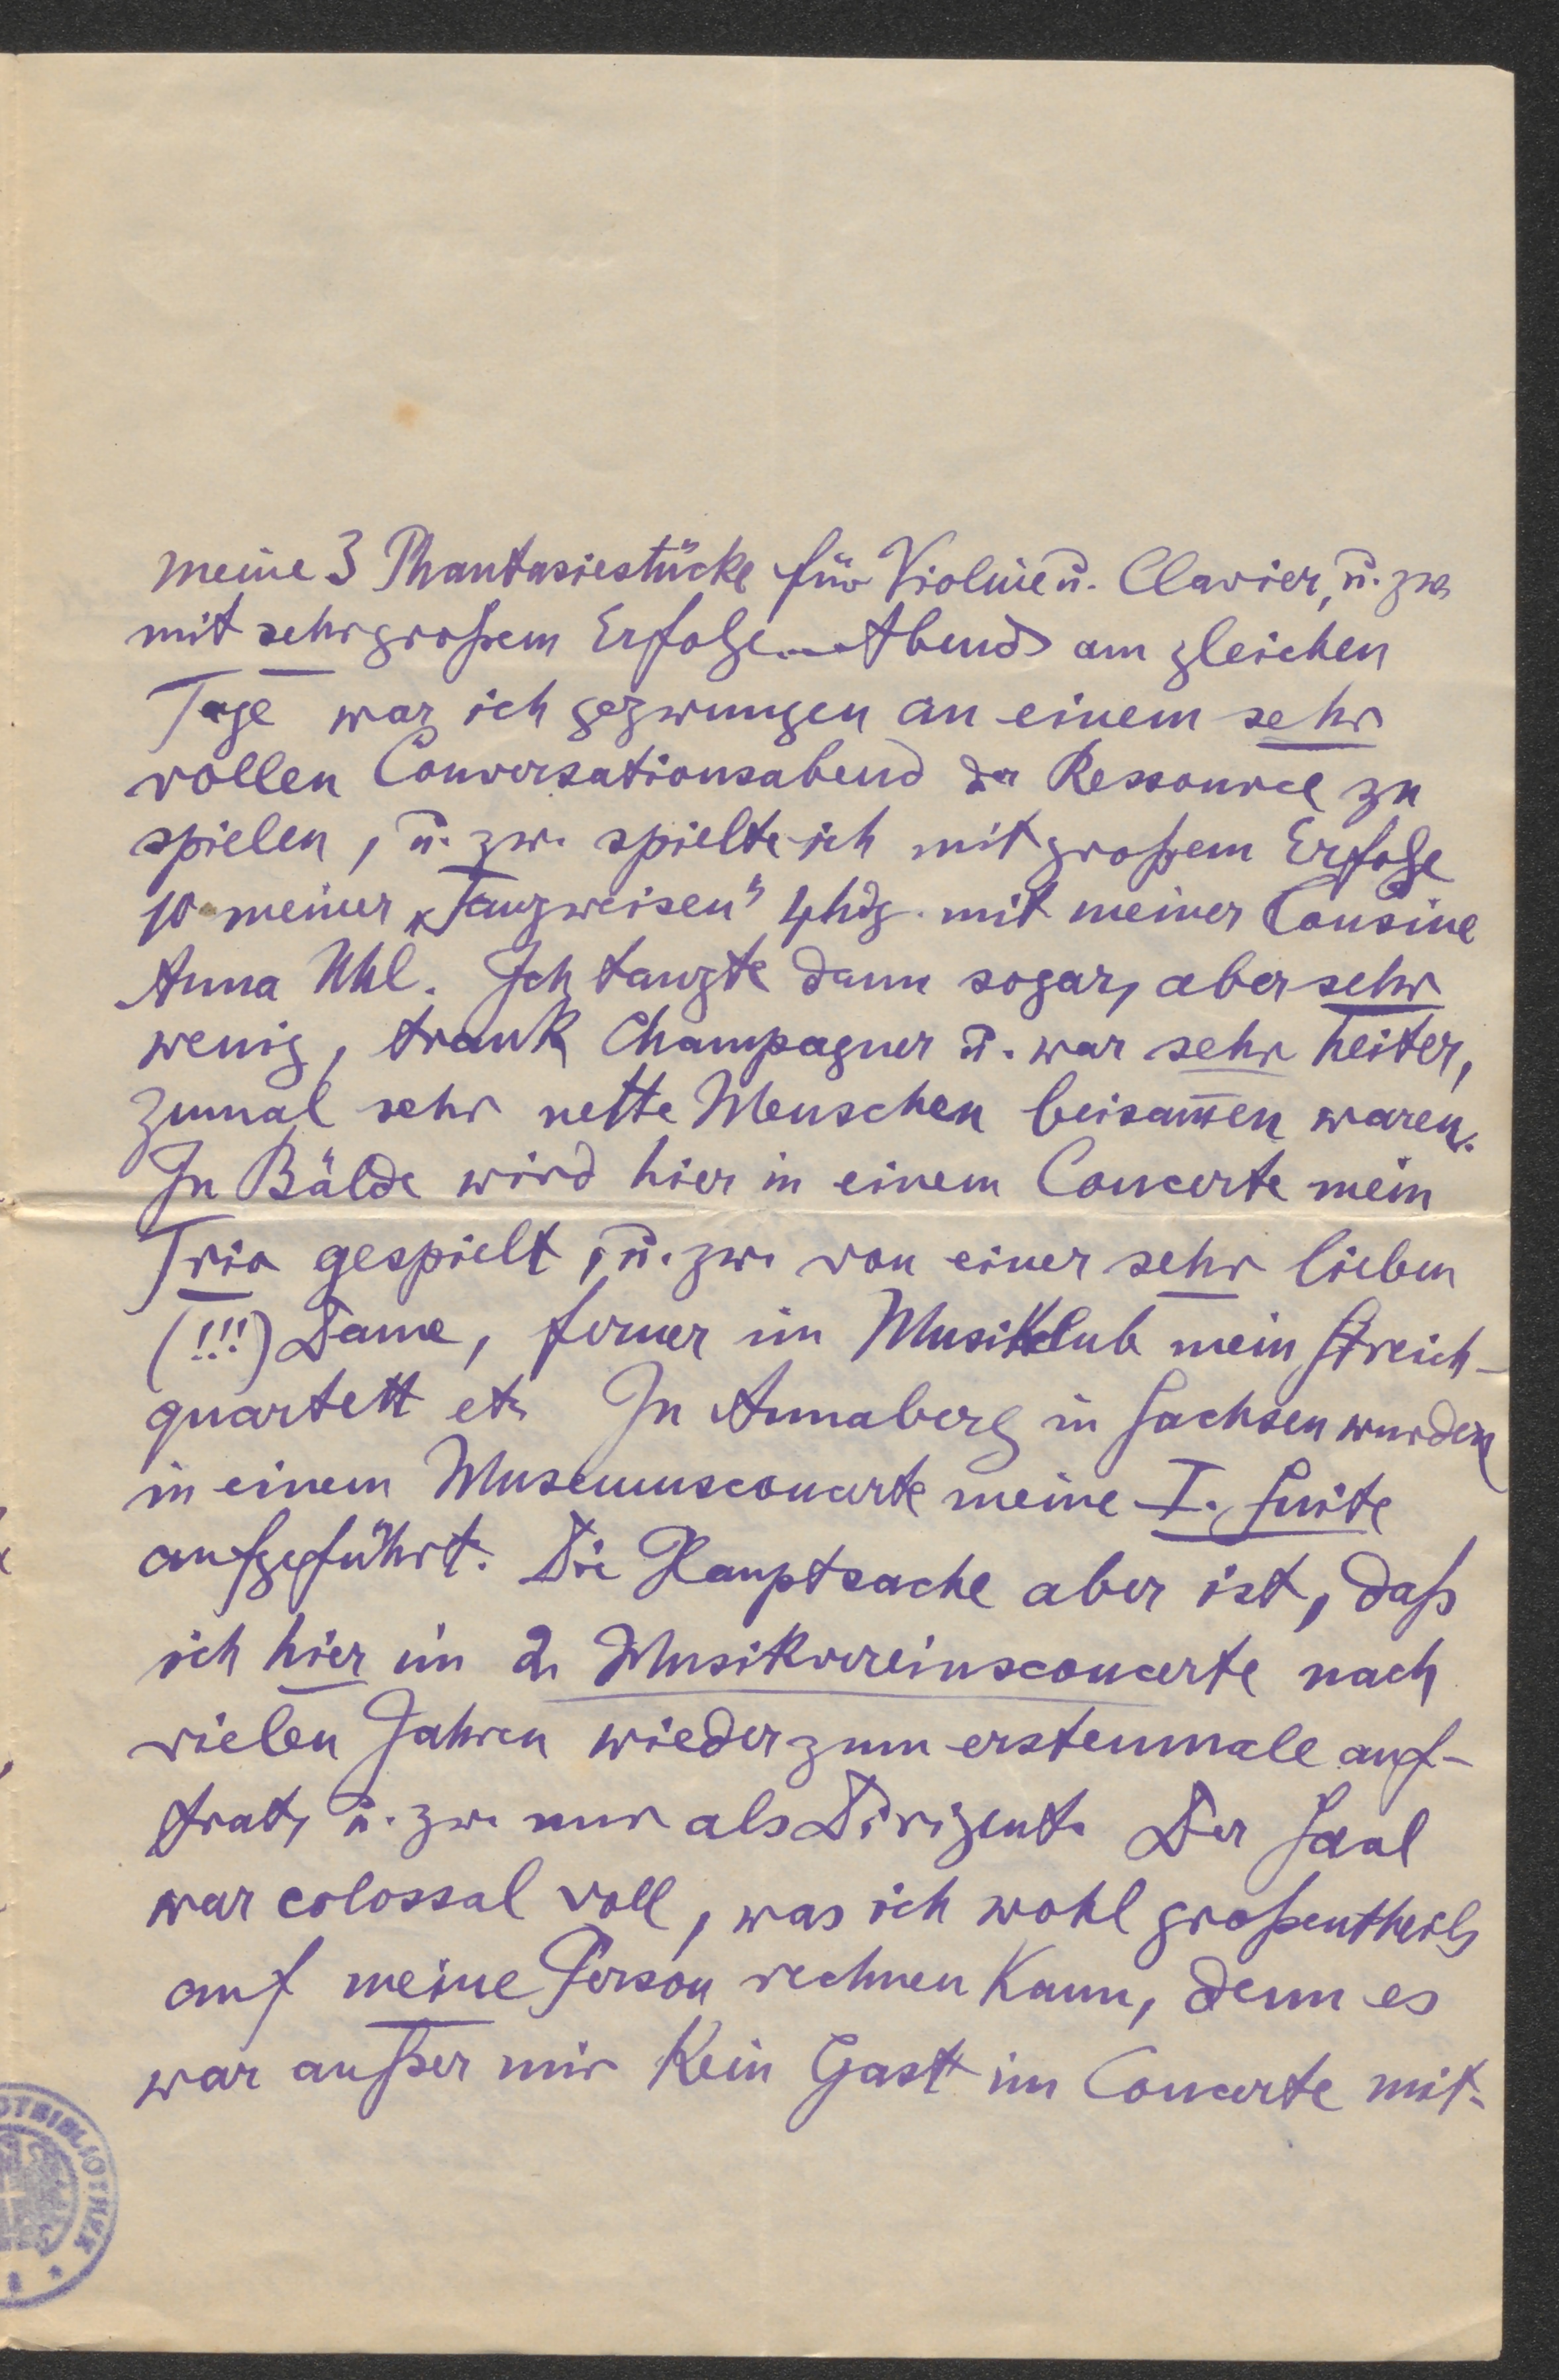 meine 3 Phantasiestücke für Violine u. Clavier, u. zw.
mit sehr großem Erfolge. Abends am gleichen
Tage war ich gezwungen an einem sehr
vollen Conversationsabend der Ressource zu
spielen, u. zw. spielte ich mit großem Erfolge
10 meiner „Tanzweisen" 4hdg. mit meiner Cousine
Anna Uhl. Ich tanzte dann sogar, aber sehr
wenig, trank Champagner u. war sehr heiter,
zumal sehr nette Menschen beisam̄en waren.
In Bälde wird hier in einem Concerte mein
Trio gespielt, u. zw. von einer sehr lieben
(!!!) Dame, ferner im Musikclub mein Streich-
quartett etc. In Annaberg in Sachsen wurden
in einem Museumsconcerte meine I. Suite
aufgeführt. Die Hauptsache aber ist, daß
ich hier im 2. Musikvereinsconcerte nach
vielen Jahren wieder zum erstenmale auf-
trat, u. zw. nur als Dirigent. Der Saal
war colossal voll, was ich wohl großentheils
auf meine Person rechnen kann, denn es
war außer mir kein Gast im Concerte mit-
OTBIBLIOTHEK